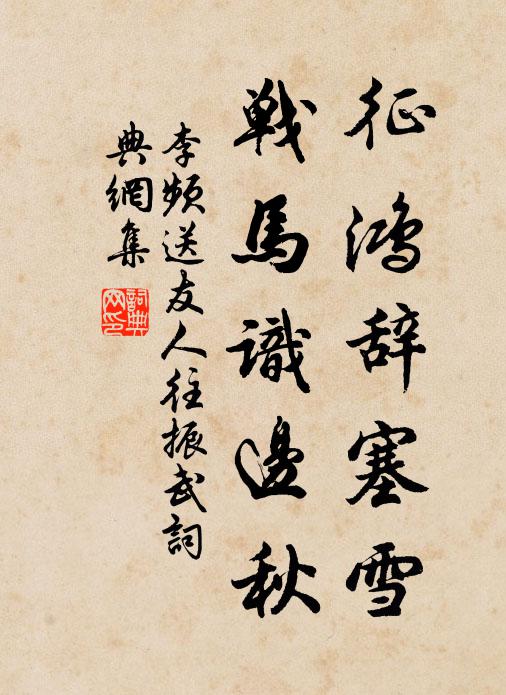 征鴻辞塞雪
戰馬識邊秋
李頻送友人往振武詞
典網集
詞典
网印